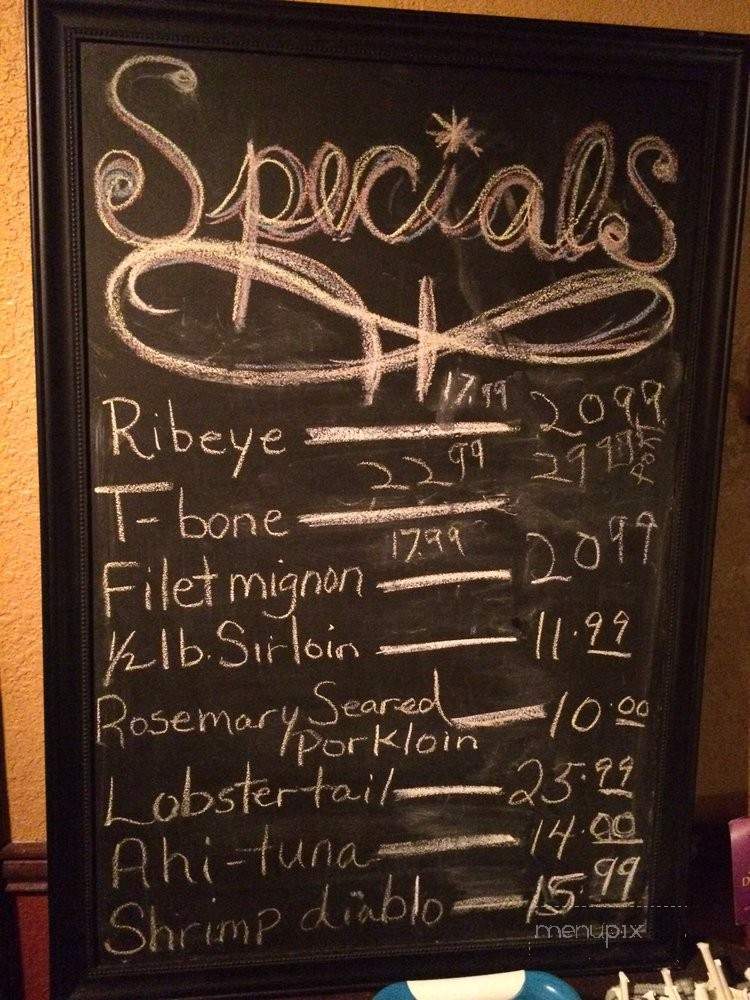 Specials
17.99 20.99
Ribeye
22.99 29.99
T-bone
17.99 20.99
Filet mignon
1/2 lb. Sirloin 11.99
Rosemary Seared 10.00
Porkloin
Lobster tail 25.99
Ahi-tuna 14.00
Shrimp diablo 15.99
menupix